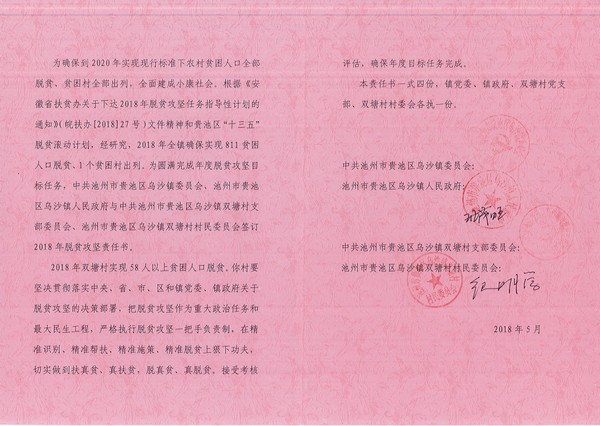 为确保到2020年实现现行标准下农村贫困人口全部
脱贫、贫困村全部出列,全面建成小康社会。根据《安
徽省扶贫办关于下达2018年脱贫攻坚任务指导性计划的
通知》(皖扶办[2018]27号)文件精神和贵池区“十三五”
脱贫滚动计划,经研究,2018年全镇确保实现811贫困
人口脱贫、1个贫困村出列,为圆满完成年度脱贫攻坚目
标任务,中共池州市贵池区乌沙镇委员会、池州市贵池
区乌沙镇人民政府与中共池州市贵池区乌沙镇双塘村支
部委员会、池州市贵池区乌沙镇双塘村村民委员会签订
2018年脱贫攻坚责任书。
2018年双塘村实现58人以上贫困人口脱贫。你村要
坚决贯彻落实中央、省、市、区和镇党委、镇政府关于
脱贫攻坚的决策部署,把脱贫攻坚作为重大政治任务和
最大民生工程,严格执行脱贫攻坚一把手负责制,在精
准识别、精准帮扶、精准施策、精准脱贫上狠下功夫,
切实做到扶真贫、真扶贫,脱真贫、真脱贫。接受考核
评估,确保年度目标任务完成。
本责任书一式四份,镇党委、镇政府、双塘村党支
部、双塘村村委会各执一份。
中共池州市贵池区乌沙镇委员会:
池州市贵池区乌沙镇人民政府:
中共池州市贵池区乌沙镇双塘村支部委员会:
池州市贵池区乌沙镇双塘村村民委员会:
2018年5月